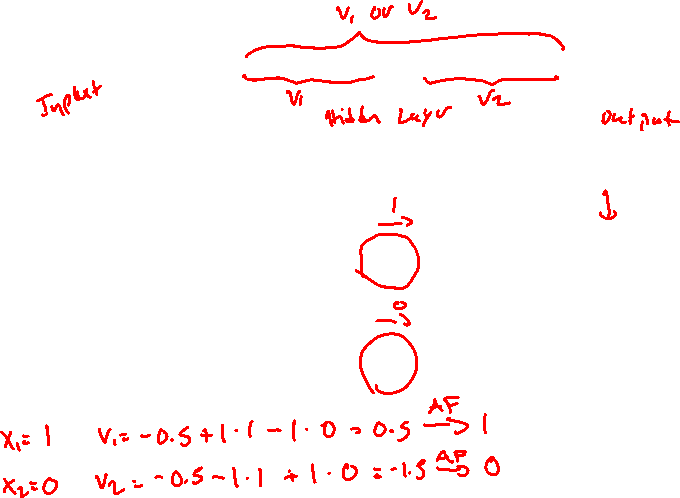 V₁ or V₂
V₁ V₂
Input Hidden Layr Output
1
0
X₁=1 V₁=-0.5+1·1-1·0=0.5 AF→ 1
X₂=0 V₂=-0.5-1·1+1·0=-1.5 AF→ 0